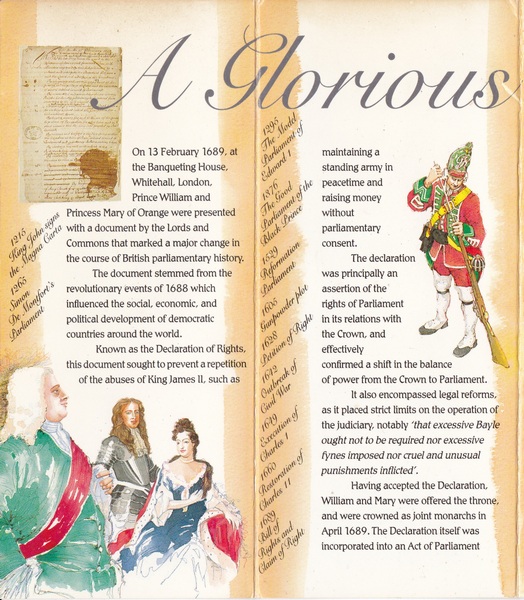 A Glorious
On 13 February 1689, at
the Banqueting House,
Whitehall, London,
Prince William and
Princess Mary of Orange were presented
with a document by the Lords and
Commons that marked a major change in
the course of British parliamentary history.
The document stemmed from the
revolutionary events of 1688 which
influenced the social, economic, and
political development of democratic
countries around the world.
Known as the Declaration of Rights,
this document sought to prevent a repetition
of the abuses of King James II, such as
1215
King John signs
the Magna Carta
1265
Simon
De Montfort's
Parliament
1295
The Model
Parliament of
Edward 1
1376
The Good
Parliament of the
Black Prince
1529
Reformation
Parliament
1605
Gunpowder plot
1628
Petition of Right
1642
Outbreak of
Civil War
1649
Execution of
Charles 1
1660
Restoration of
Charles 11
1689
Bill of
Rights and
Claim of Right
maintaining a
standing army in
peacetime and
raising money
without
parliamentary
consent.
The declaration
was principally an
assertion of the
rights of Parliament
in its relations with
the Crown, and
effectively
confirmed a shift in the balance
of power from the Crown to Parliament.
It also encompassed legal reforms,
as it placed strict limits on the operation of
the judiciary, notably 'that excessive Bayle
ought not to be required nor excessive
fynes imposed nor cruel and unusual
punishments inflicted'.
Having accepted the Declaration,
William and Mary were offered the throne,
and were crowned as joint monarchs in
April 1689. The Declaration itself was
incorporated into an Act of Parliament